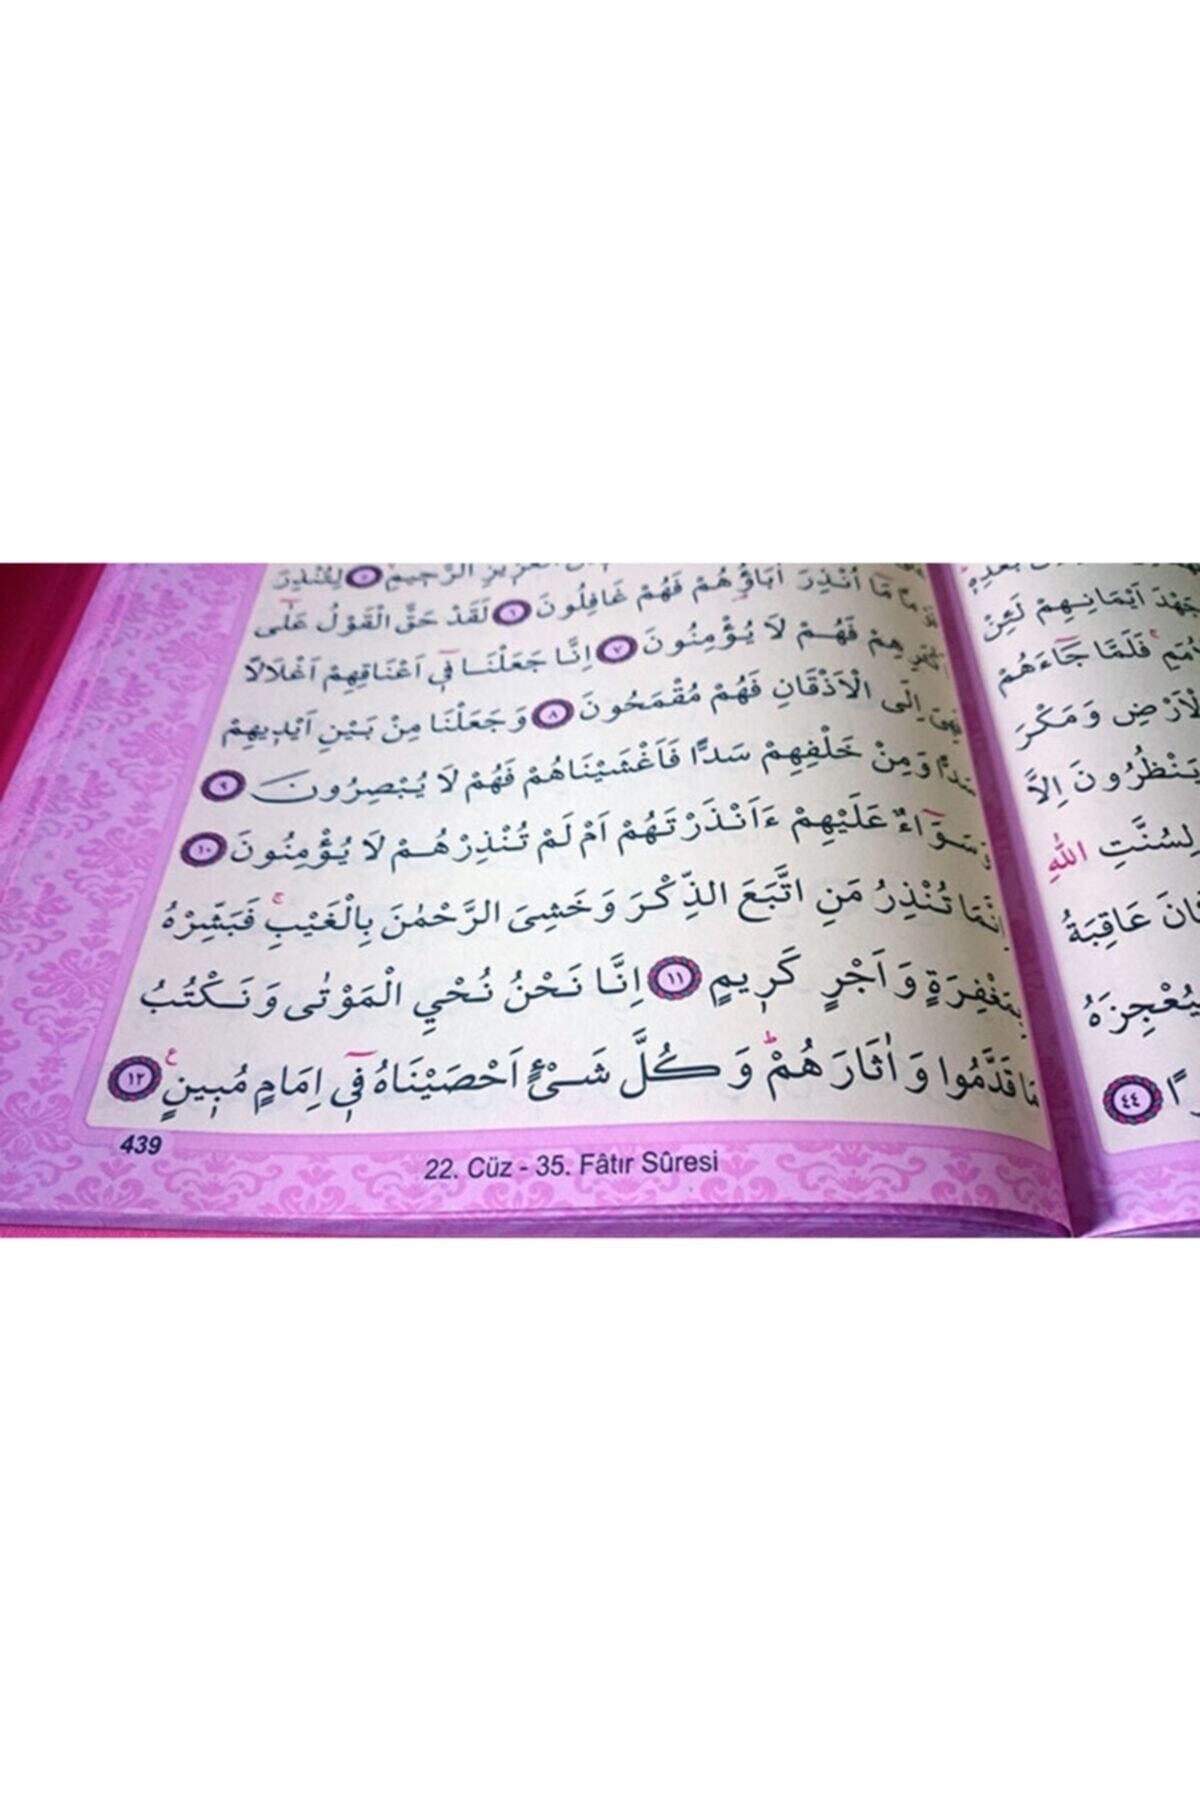 بَعْدِهِ
جَهْدَ اَيْمَانِهِمْ لَئِنْ
الْاُمَمِۚ فَلَمَّا جَٓاءَهُمْ
الْاَرْضِ وَمَكْرَ
يَنْظُرُونَ اِلَّا
لِسُنَّتِ اللّٰهِ
كَانَ عَاقِبَةُ
لِيُعْجِزَهُ
٤٤
الْعَزٖيزِ الرَّحٖيمِ ٥ لِتُنْذِرَ
مَٓا اُنْذِرَ اٰبَٓاؤُ۬هُمْ فَهُمْ غَافِلُونَ ٦ لَقَدْ حَقَّ الْقَوْلُ عَلٰٓى
فَهُمْ لَا يُؤْمِنُونَ ٧ اِنَّا جَعَلْنَا فٖٓي اَعْنَاقِهِمْ اَغْلَالًا
فَهِيَ اِلَى الْاَذْقَانِ فَهُمْ مُقْمَحُونَ ٨ وَجَعَلْنَا مِنْ بَيْنِ اَيْدٖيهِمْ
سَدًّا وَمِنْ خَلْفِهِمْ سَدًّا فَاَغْشَيْنَاهُمْ فَهُمْ لَا يُبْصِرُونَ ٩
وَسَوَٓاءٌ عَلَيْهِمْ ءَاَنْذَرْتَهُمْ اَمْ لَمْ تُنْذِرْهُمْ لَا يُؤْمِنُونَ ١٠
اِنَّمَا تُنْذِرُ مَنِ اتَّبَعَ الذِّكْرَ وَخَشِيَ الرَّحْمٰنَ بِالْغَيْبِۚ فَبَشِّرْهُ
بِمَغْفِرَةٍ وَاَجْرٍ كَرٖيمٍ ١١ اِنَّا نَحْنُ نُحْيِ الْمَوْتٰى وَنَكْتُبُ
مَا قَدَّمُوا وَاٰثَارَهُمْؕ وَكُلَّ شَيْءٍ اَحْصَيْنَاهُ فٖٓي اِمَامٍ مُبٖينٍ ع ١٢
439
22. Cüz - 35. Fâtır Sûresi